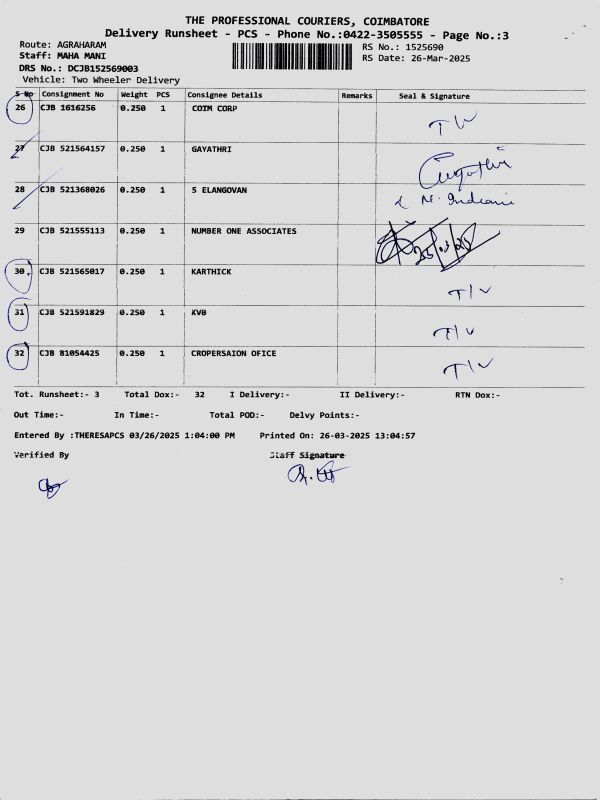 THE PROFESSIONAL COURIERS, COIMBATORE
Delivery Runsheet - PCS - Phone No.:0422-3505555 - Page No.:3
Route: AGRAHARAM RS No.: 1525690
Staff: MAHA MANI RS Date: 26-Mar-2025
DRS No.: DCJB152569003
Vehicle: Two Wheeler Delivery
S No Consignment No Weight PCS Consignee Details Remarks Seal & Signature
26 CJB 1616256 0.250 1 COIM CORP
27 CJB 521564157 0.250 1 GAYATHRI
28 CJB 521368026 0.250 1 S ELANGOVAN
29 CJB 521555113 0.250 1 NUMBER ONE ASSOCIATES
30 CJB 521565017 0.250 1 KARTHICK T/V
31 CJB 521591829 0.250 1 KVB T/V
32 CJB 81054425 0.250 1 CROPERSAION OFICE T/V
Tot. Runsheet:- 3 Total Dox:- 32 I Delivery:- II Delivery:- RTN Dox:-
Out Time:- In Time:- Total POD:- Delvy Points:-
Entered By :THERESAPCS 03/26/2025 1:04:00 PM Printed On: 26-03-2025 13:04:57
Verified By Staff Signature